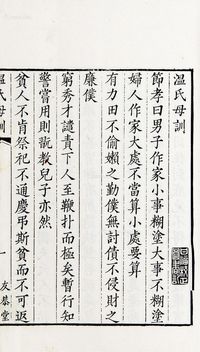 溫氏母訓
節孝曰男子作家小事糊塗大事不糊塗
婦人作家大處不當算小處要算
有力田不偷嬾之勤僕無討債不侵財之
廉僕
窮秀才譴責下人至鞭扑而極矣暫行知
警嘗用則翫教兒子亦然
貧人不肯祭祀不通慶弔斯貧而不可返
溫氏母訓 一 友恭堂